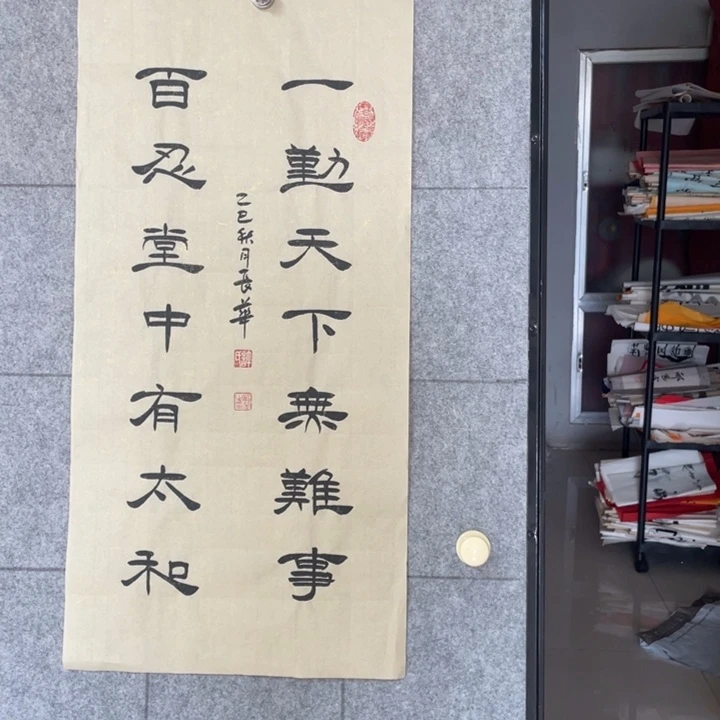 一勤天下無難事
百忍堂中有太和
乙巳秋月長華